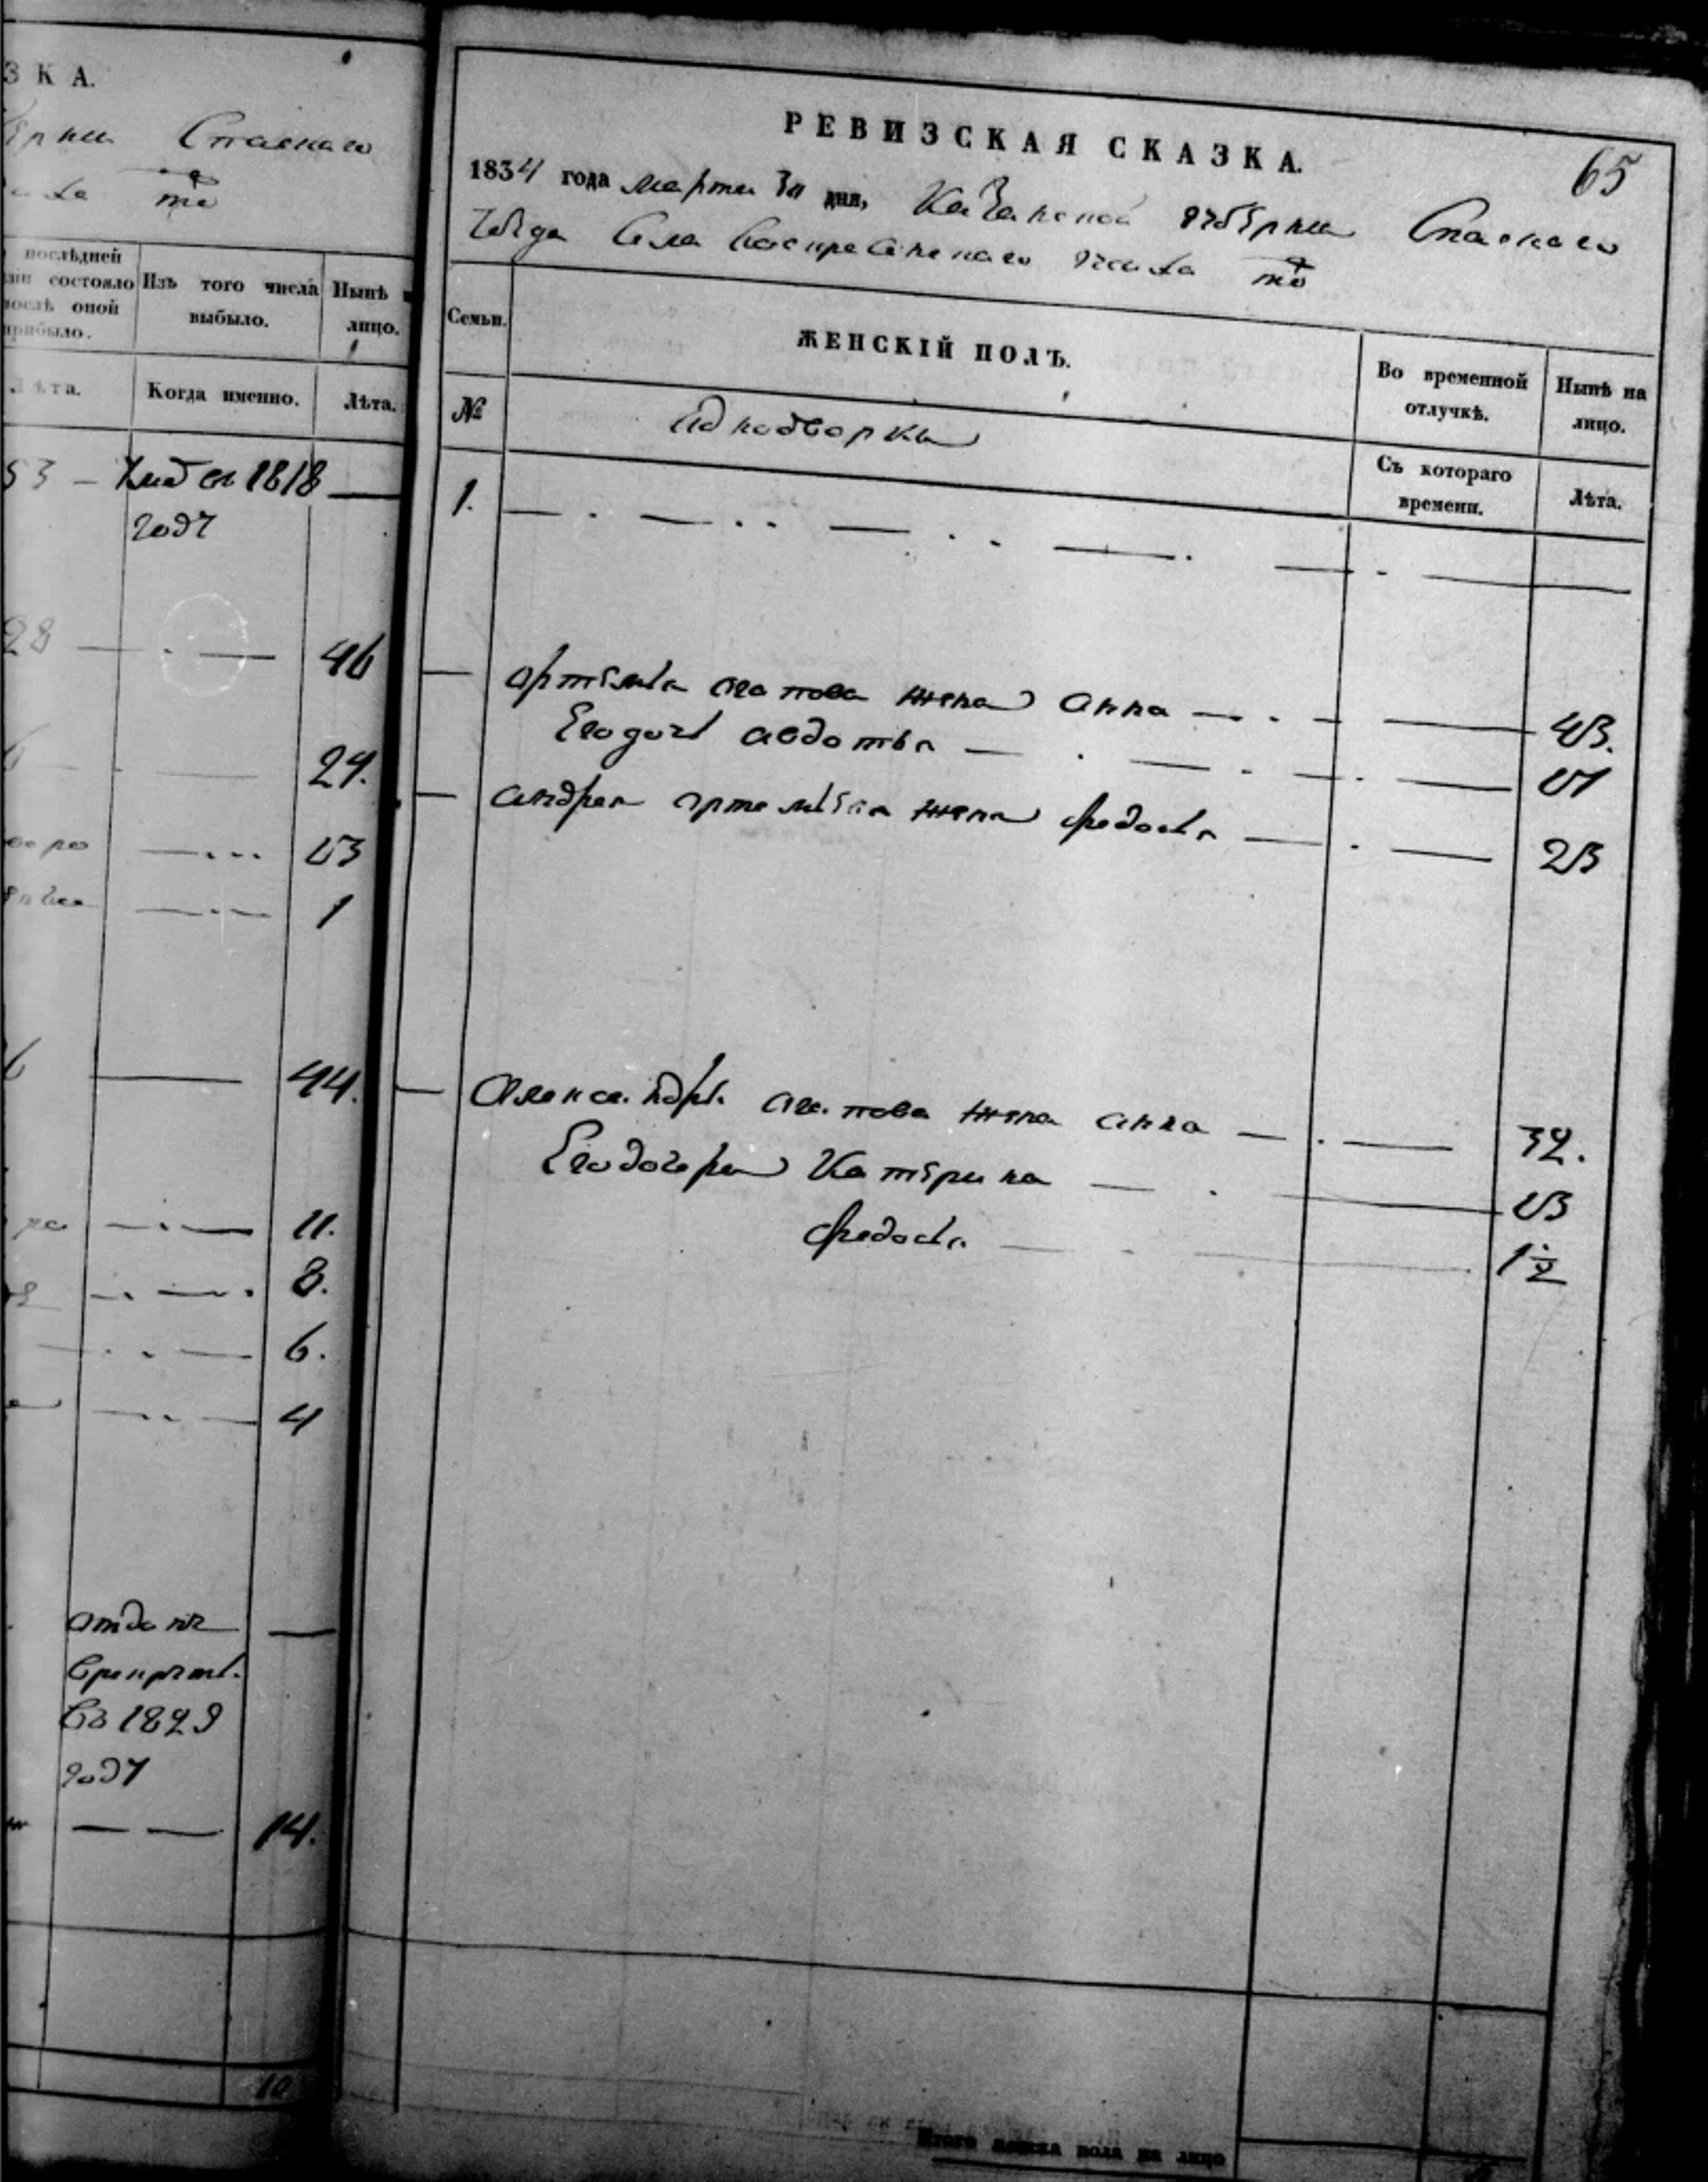 З К А.
Спаскаго
то
послѣдней
состояло
послѣ оной
прибыло.
Изъ того числа
выбыло.
Нынѣ
лицо.
Лѣта.
Когда именно.
Лѣта.
53 — 1818 —
году
28 — . — 46
24.
— ... 15
— . — 1
44.
— . — 11.
— . — . 8.
— . . — 6.
— . . — 4
отданъ —
врекруты
въ 1829
году
— — 14.
10
РЕВИЗСКАЯ СКАЗКА.
65
1834 года марта дня, Казанской губернии Спаскаго
уезда Села Воскресенскаго то
Семьи.
ЖЕНСКІЙ ПОЛЪ.
Во временной
отлучкѣ.
Нынѣ на
лицо.
№
Аднодворки
Съ котораго
времени.
Лѣта.
1.
— артемья агапова жена анна — . — 45.
Его дочь авдотья —
— андрея артемьева жена федосья — . — 25
— Александры агапова жена анна — . — 32.
Его дочери Катерина — . — 15
федосья — 1 1/2
Итого женска пола на лицо